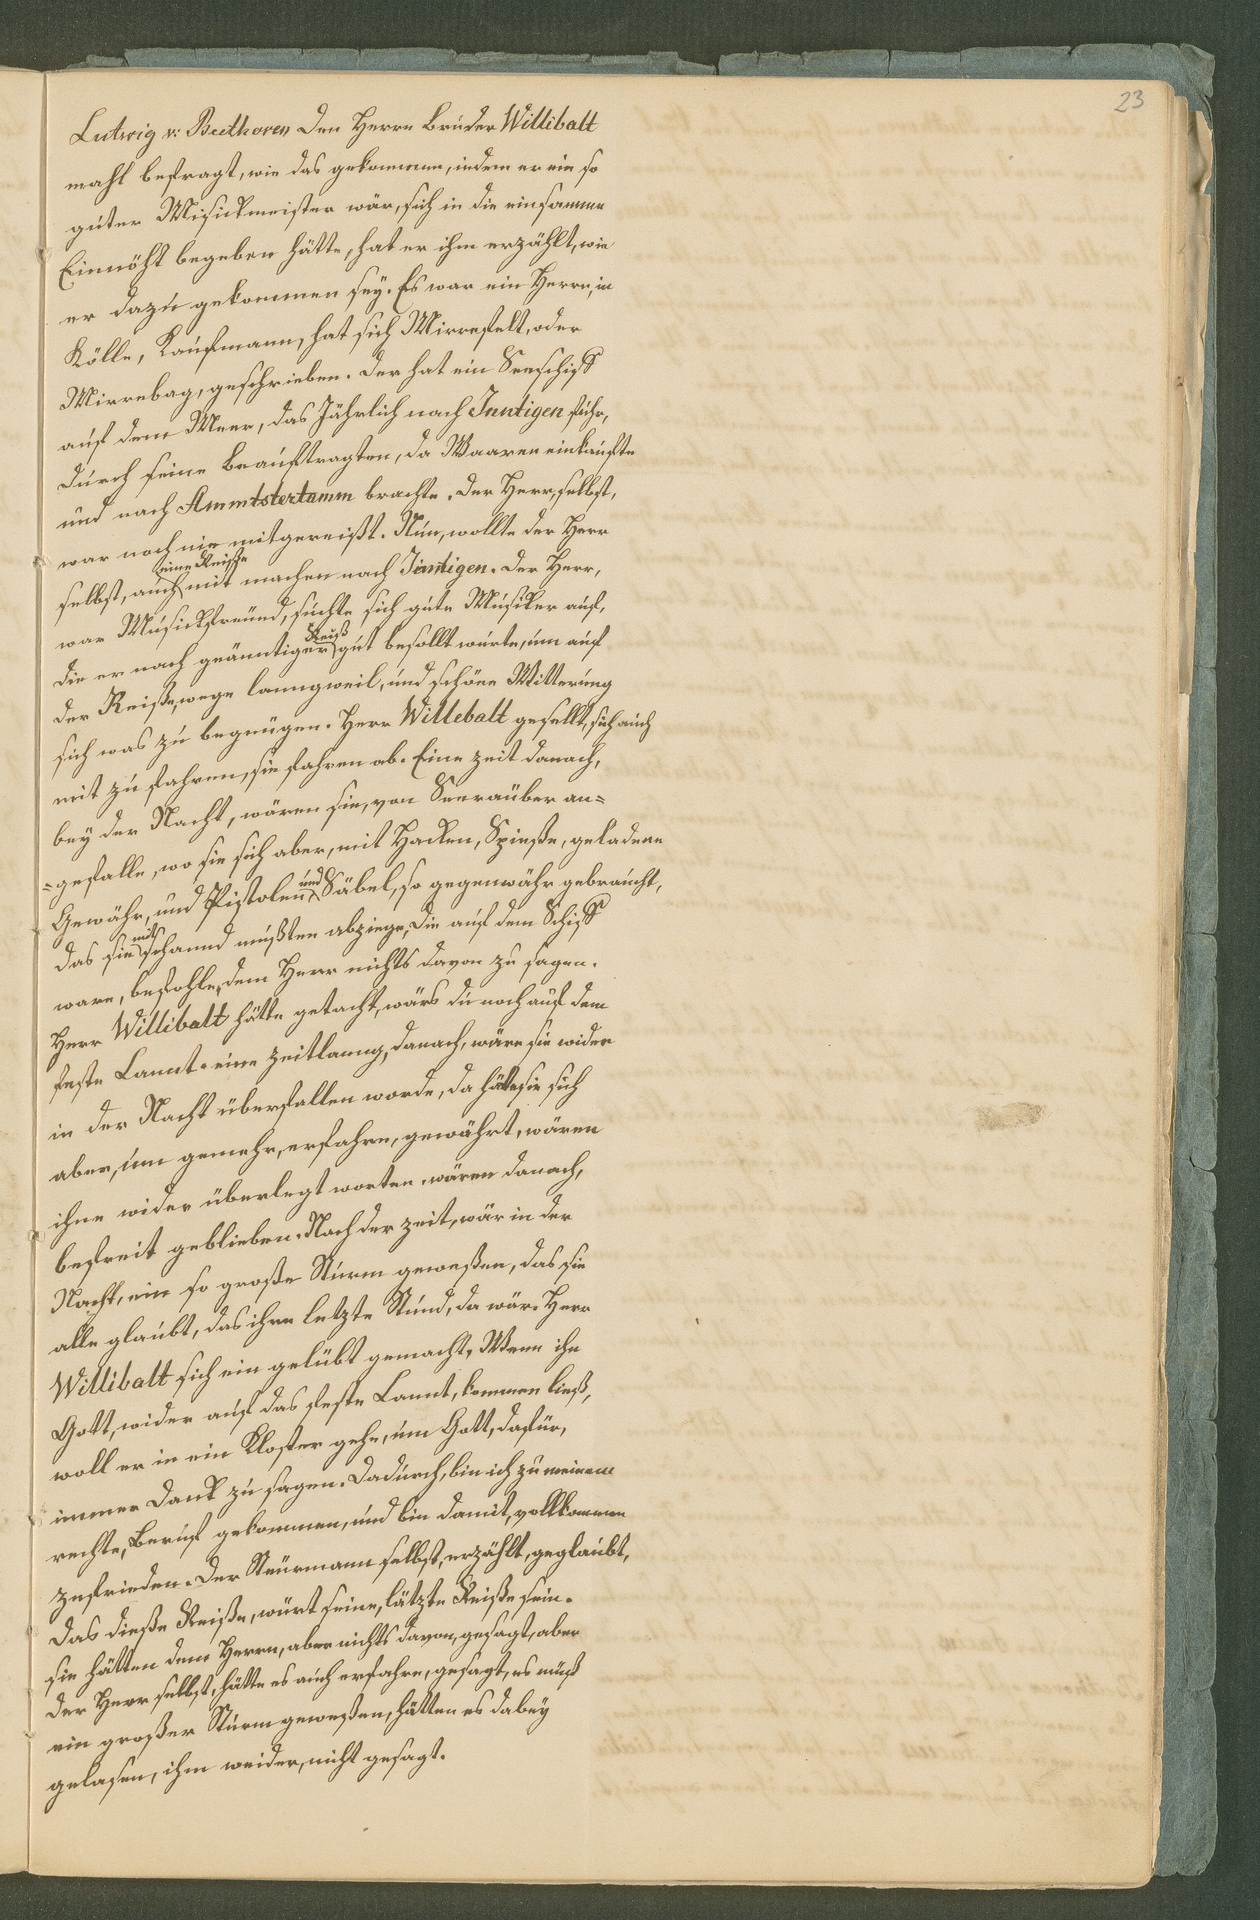 23
Lutwig v: Beethoven den Herrn Bruder Willibalt
mahl befragt, wie das gekommen, indem er ein so
guter Musickmeister wär, sich in die einsamme
Einnöht begeben hätte, hat er ihm erzählt, wie
er dazu gekommen sey. Es war ein Herrn, in
Kölle, Kaufmann, hat sich Mirrefelt, oder
Mirrebag, geschrieben. der hat ein Seeschiff
auf dem Meer, das Jährlich nach Inntigen fuhr,
durch seine beauftragten, da Waaren einkaufte
und nach Ammtstertamm brachte. der Herr, selbst,
war noch nie mitgereißt. Nun, wollte der Herr
selbst, auch eine Reiße mit machen nach Jintigen. der Herr,
war Musickfreund, suchte sich gute Musiker auf,
die er nach geänntiger Reiß gut besollt wurte, um auf
der Reiße, wege lanngweil, und schöne Witterung
sich was zu begnügen. Herr Willebalt gesellt, sich auch
mit zu fahren, sie fahren ab. Eine zeit danach,
bey der Nacht, wären sie, von Seeraüber an=
=gefalle, wo sie sich aber, mit Hacken, Spieße, geladene
Gewähr, und Pistolen und Säbel, so gegenwähr gebraucht,
das sie mit schannd mußten abziege, die auf dem Schiff
ware, befohle, dem Herr nichts davon zu sagen.
Herr Willibalt hätte getacht, wärs du noch auf dem
feste Lannt. eine zeitlanng, danach, wäre sie wider
in der Nacht überfallen worde, da häte sie sich
aber, um gemehr, erfahre, gewährt, wären
ihne wider überlegt worten. wären danach,
befreit geblieben. Nach der zeit, wär in der
Nacht, ein so große Sturm geweßen, das sie
alle glaubt, das ihre letzte Stund, da wär. Herr
Willibalt sich ein gelübt gemacht, Wenn ihn
Gott, wider auf das feste Lannt, kommen ließ,
woll er in ein Kloster gehe, um Gott, dafür,
immer Dank zu sagen. dadurch, bin ich zu meinem
rechte, Beruf gekommen, und bin damit, vollkommen
zufrieden. der Steürmann selbst, erzählt, geglaubt,
das dieße Reiße, würt seine, lätzte Reiße sein.
sie hätten dem Herrn, aber nichts davon, gesagt, aber
der Herr selbst, hätte es auch erfahre, gesagt, es muß
ein großer Sturm geweßen, hätten es dabey
gelasen, ihm weider, nicht gesagt.